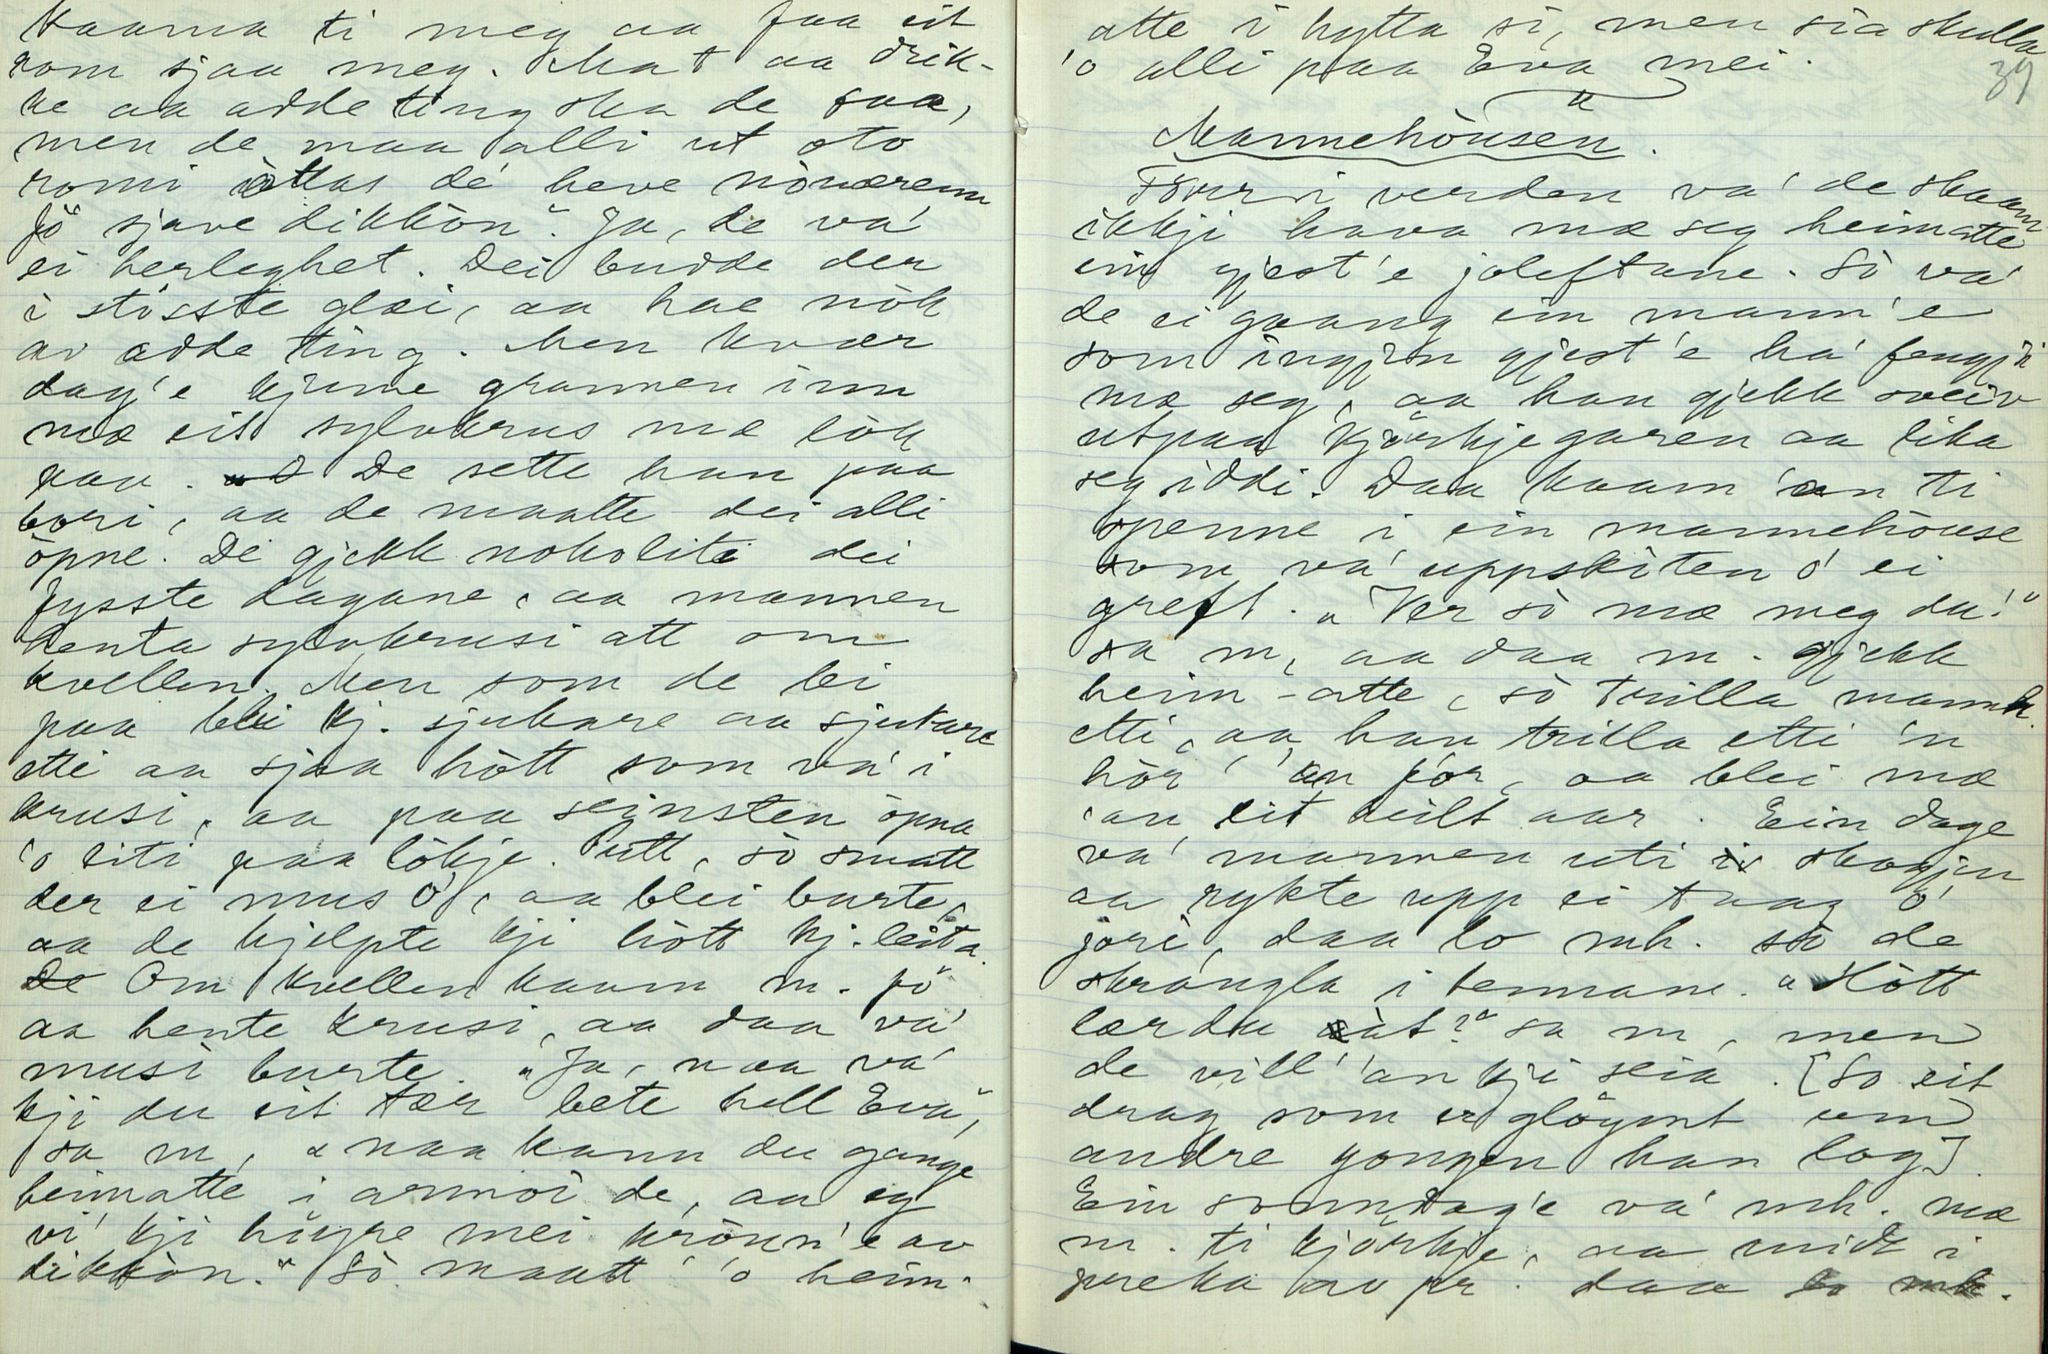 kaama ti meg aa faa eit
rom sjaa meg. Mat aa drik-
ke aa adde ting ska de faa,
men de maa alli ut oto
romi attas dé heve
fö sjave dikkòn". Ja, de va'
ei herleghet. Dei budde der
i stósste glæi, aa hae nòk
av adde ting. Men kvær
dag'e kjeme grannen inn
mæ eit sylvkrus mæ lòk
paa. De sette han paa
bori, aa de maatte dei alli
òpne. De gjekk nokolite dei
fysste dagane, aa mannen
henta sylvkrusi att om
kvellen. Men som de lei
paa blei kj. sjukare aa sjukare
etti aa sjaa hòtt som va' i
krusi, aa paa seinsten òpna
'o liti paa lòkje. Putt, sò smatt
der ei mus ó, aa blei burte,
aa de hjelpte kji hòtt kj. leita.
Om kvellen kaam m. fö
aa hente krusi, aa daa va'
musi burte. "Ja, naa va'
kji du eit hær bete hell Eva",
sa m, "naa kann du gange
heimatte i armoi de, aa eg
vi' kji høyre mei krònn'e av
dikkòn." Sò maatt' 'o heim-
atte i hytta si, men sia skulla
'o alli paa Eva mei.
39
Mannehòusen.
Föur i verden va' de skaam
ikkji hava mæ seg heimatte
ein gjest'e joleftane. Sò va'
de ei gaang ein mann'e
som ingjen gjest'e ha' fengji
mæ seg, aa han gjekk sveiv
utpaa kjörkjegaren aa lika
seg iddi. Daa kaam 'an ti
openne i ein mannehòuse
som va' uppskiten ó' ei
greft. "Ver sò mæ meg du!"
sa m, aa daa m. gjekk
heim-atte, sò trilla mannh.
etti, aa han trilla etti 'n
hòr 'an fór, aa blei mæ
'an eit heilt aar. Ein dage
va' mannen uti skogjen
aa rykte upp ei taag ó'
jòri, daa lo mh. sò de
skrangla i tennane. "Hòtt
lær du àt?" sa m, men
de vill' 'an kji seia. [So eit
drag som er gløymt um
andre gongen han log].
Ein sonndag'e va' mh. mæ
m. ti kjörkje, aa midt i
preka av pr. daa lo mh.